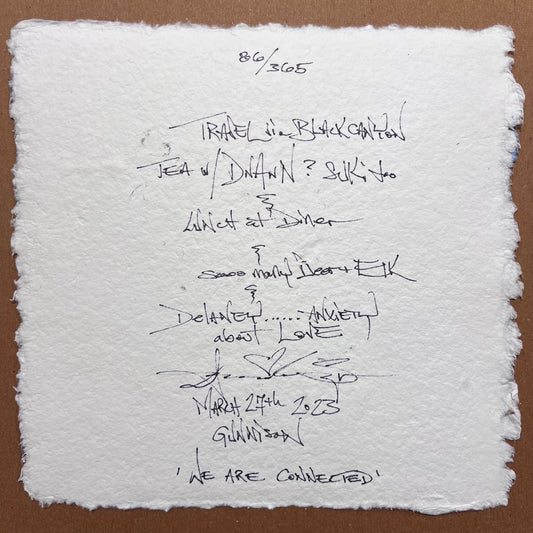 86/365
TRAVEL via BLACK CANYON
TEA w/ DNANN? SUKI too
&
LUNCH at Diner
&
sooo many Deer + ELK
&
DELANEY...... ANXIETY
about LOVE
MARCH 27th 2023
GUNNISON
'WE ARE CONNECTED'